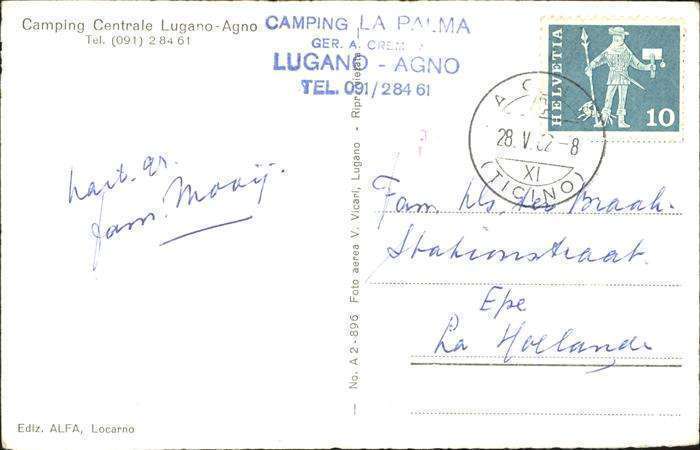 Camping Centrale Lugano-Agno
Tel. (091) 2 84 61
CAMPING LA PALMA
GER. A.
LUGANO - AGNO
TEL. 091/284 61
HELVETIA
10
28. V. 62-8
XI
(TICINO)
hart. gr.
fam. Mooij.
Fam. Braak.
Stationstraat.
Epe
La Hollande
No. A 2-896 Foto aerea V. Vicari, Lugano - Ripr
Ediz. ALFA, Locarno